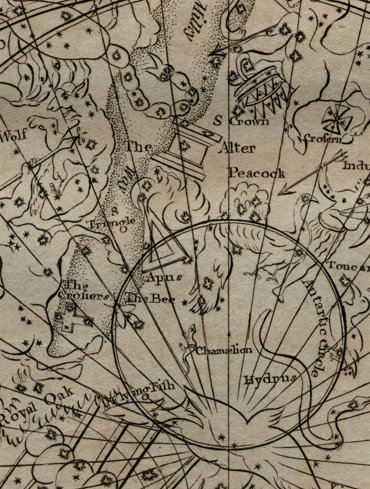 Milky
Wolf
S Crown
Crosern
The
Alter
Peacock
Indu
Way
S
Triangle
Toucan
Apus
The
Crosiers
The Bee
Antartic Circle
Chamœlion
Hydrus
Flying Fish
Royal Oak